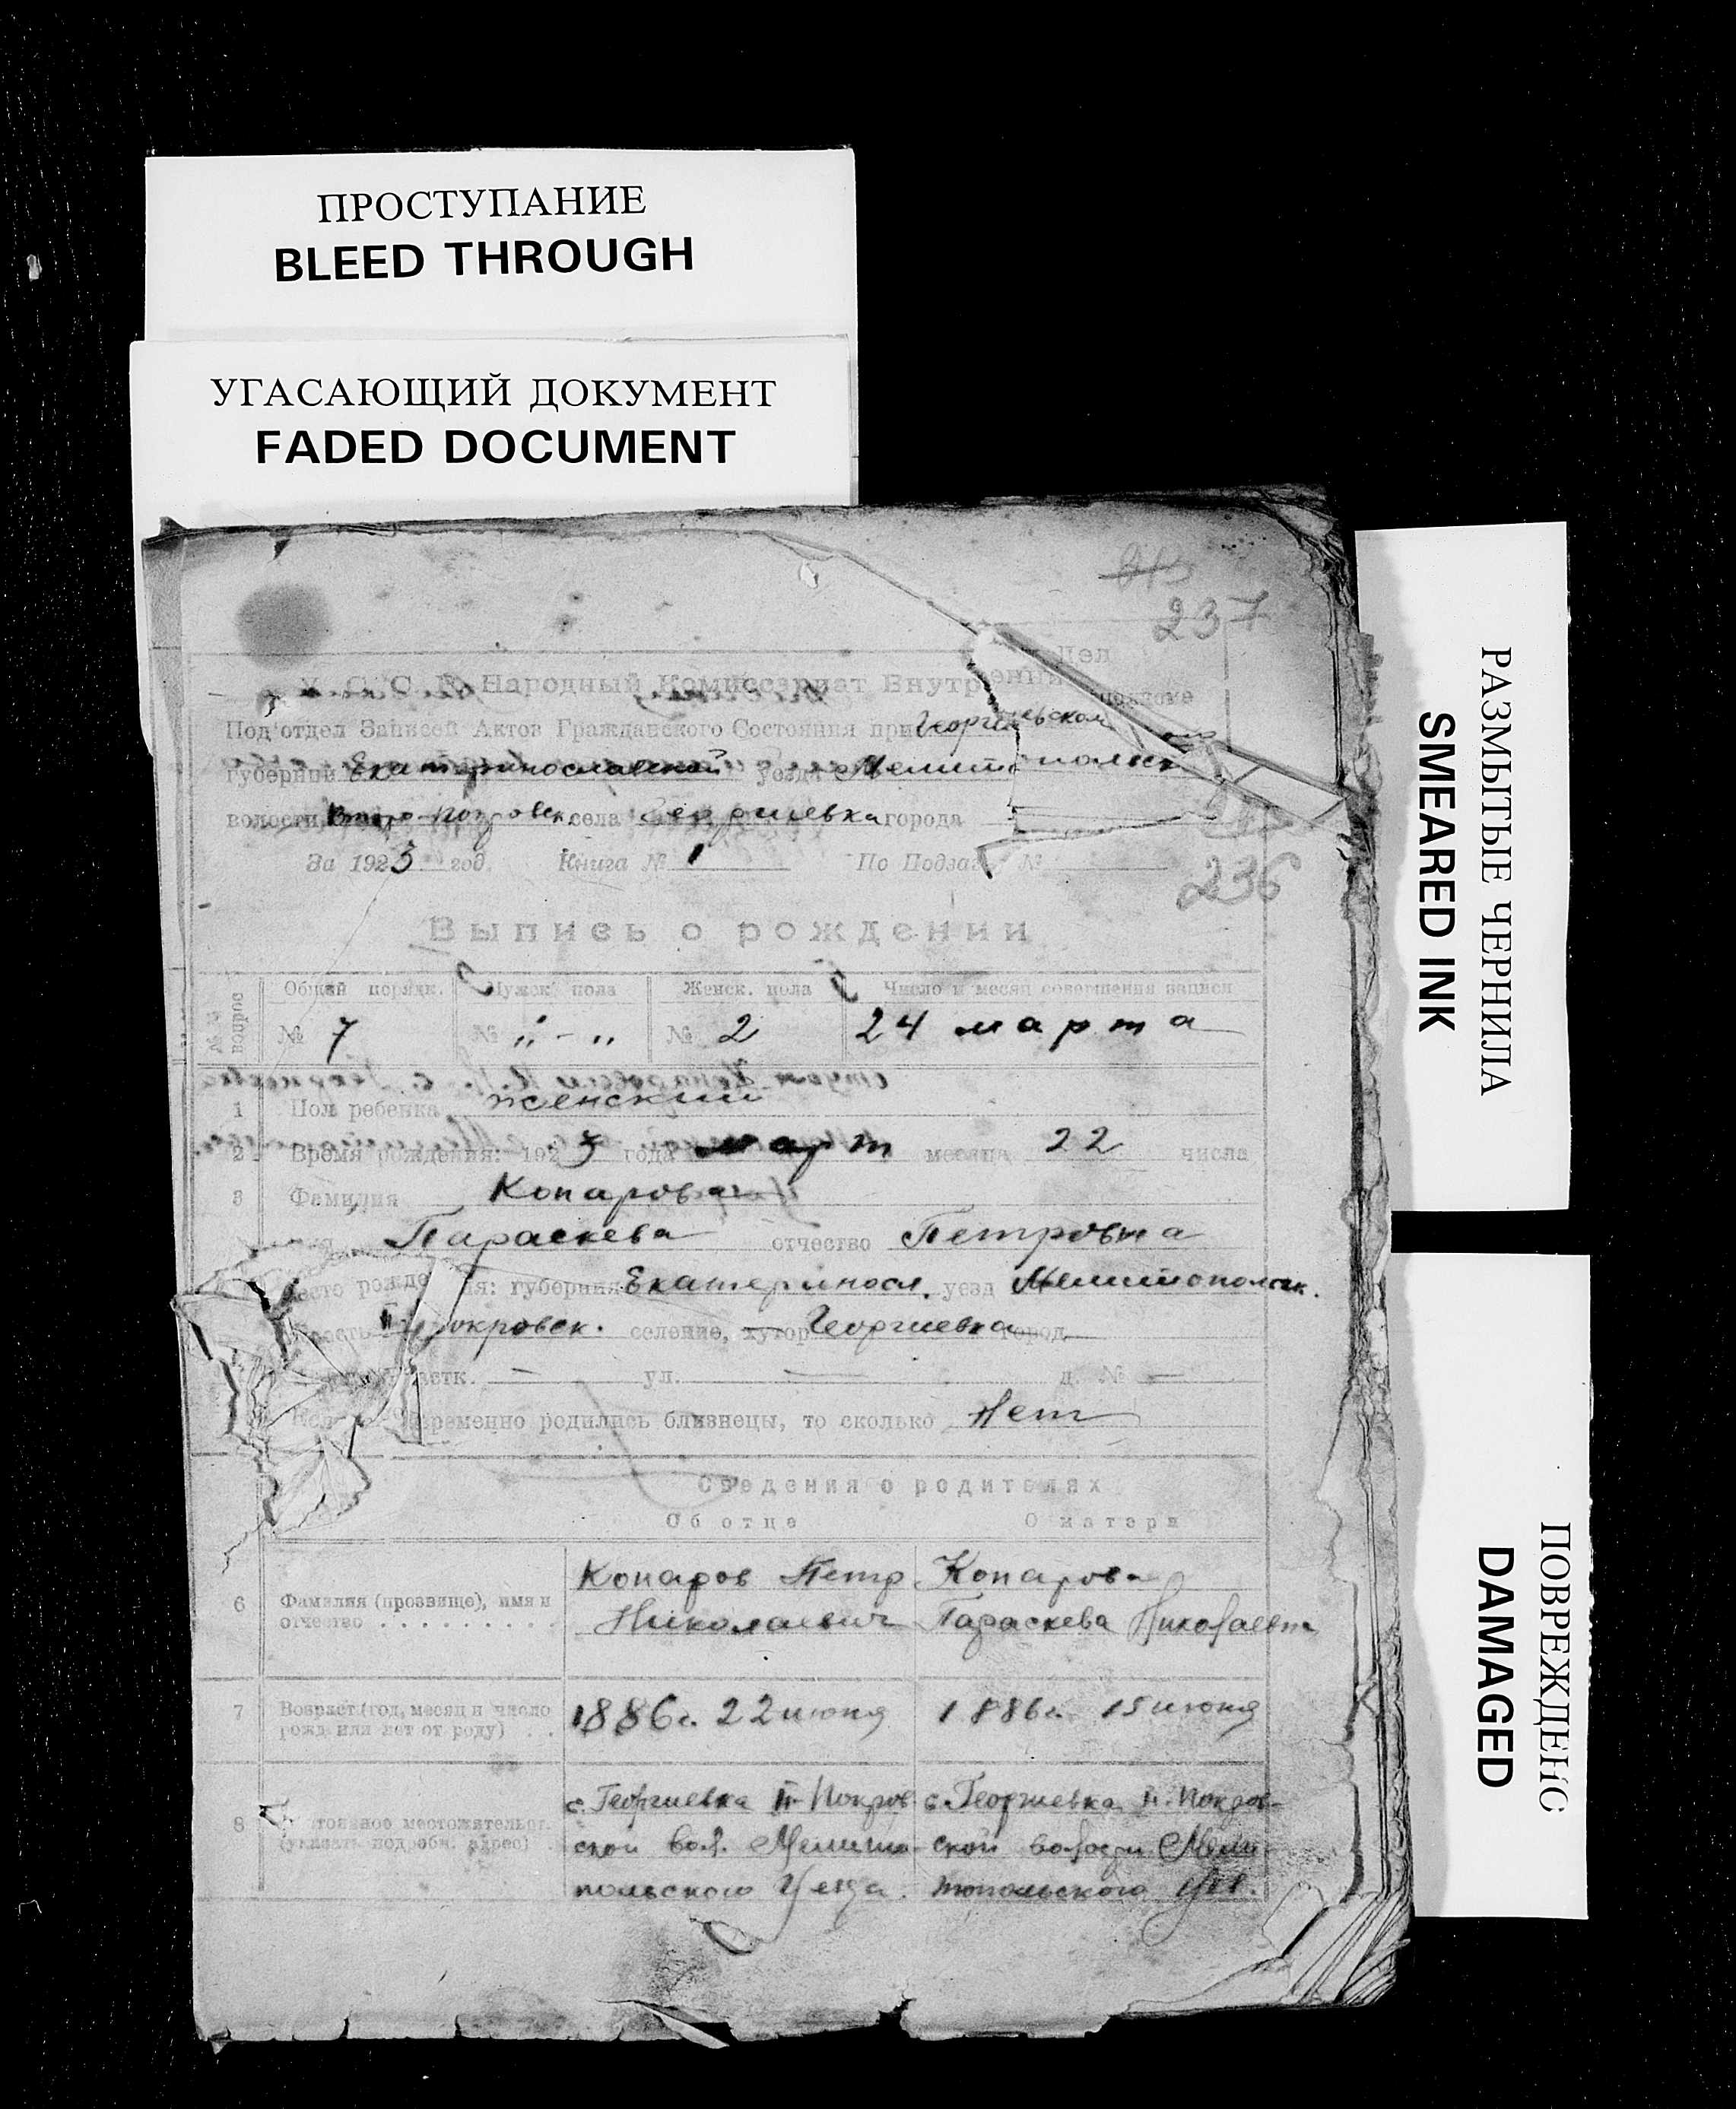 ПРОСТУПАНИЕ
BLEED THROUGH
УГАСАЮЩИЙ ДОКУМЕНТ
FADED DOCUMENT
РАЗМЫТЫЕ ЧЕРНИЛА
SMEARED INK
ПОВРЕЖДЕНС
DAMAGED
237
У. С. С. Р. Народный Комиссариат Внутренни Дел
Под'отдел Записей Актов Гражданского Состояния при Георгиевском
губернии Екатеринославской уезда Мелитопольск
волости села Георгиевка города
За 1923 год. Книга № 1 По Подзаг. №
236
Выпись о рождении
Общий порядк. Мужск. пола Женск. пола Число и месяц совершения записи
№ 7 № „ - „ № 2 24 марта
1 Пол ребенка женский
2 Время рождения: 1923 года март месяца 22 числа
3 Фамилия Копарова
Параскева отчество Петровна
место рожде ия: губерния Екатеринося. уезд Мелитопольск.
Покровск. селение, хутор Георгиевка город
ул. д. №
временно родились близнецы, то сколько Нет
Сведения о родителях
Об отце О матери
6 Фамилия (прозвище), имя и отчество
Копаров Петр Николаевич
Копарова Параскева Николаевн
7 Возраст (год, месяц и число рожд. или лет от роду)
1886 г. 22 июня
1886 г. 15 июня
8 стоянное местожительст. (указать подробн. адрес)
с. Георгиевка II-Покров
ской вол. Мелито-
польского Уезда.
с. Георгиевка II-Покров-
ской волости Мели-
топольского уез.